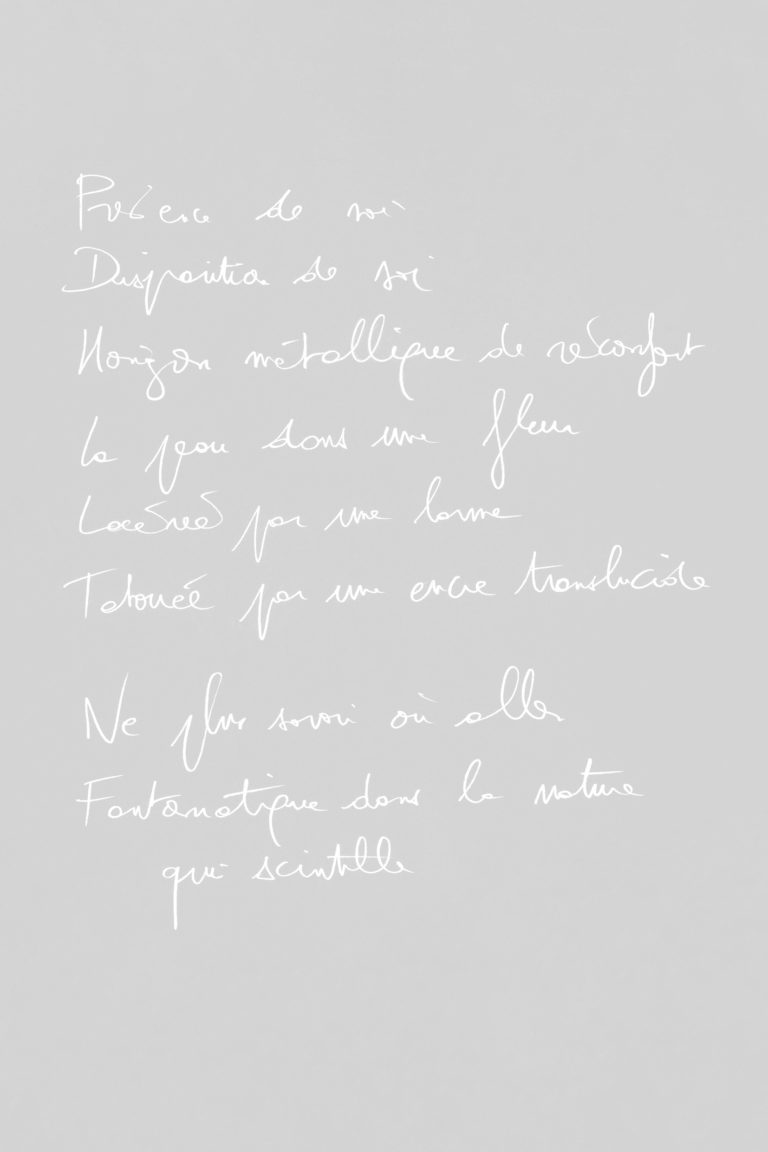 Présence de soi
Disparition de soi
Horizon métallique de réconfort
La peau dans une fleur
Lacérée par une larme
Tatouée par une encre translucide
Ne plus savoir où aller
Fantomatique dans la nature
qui scintille